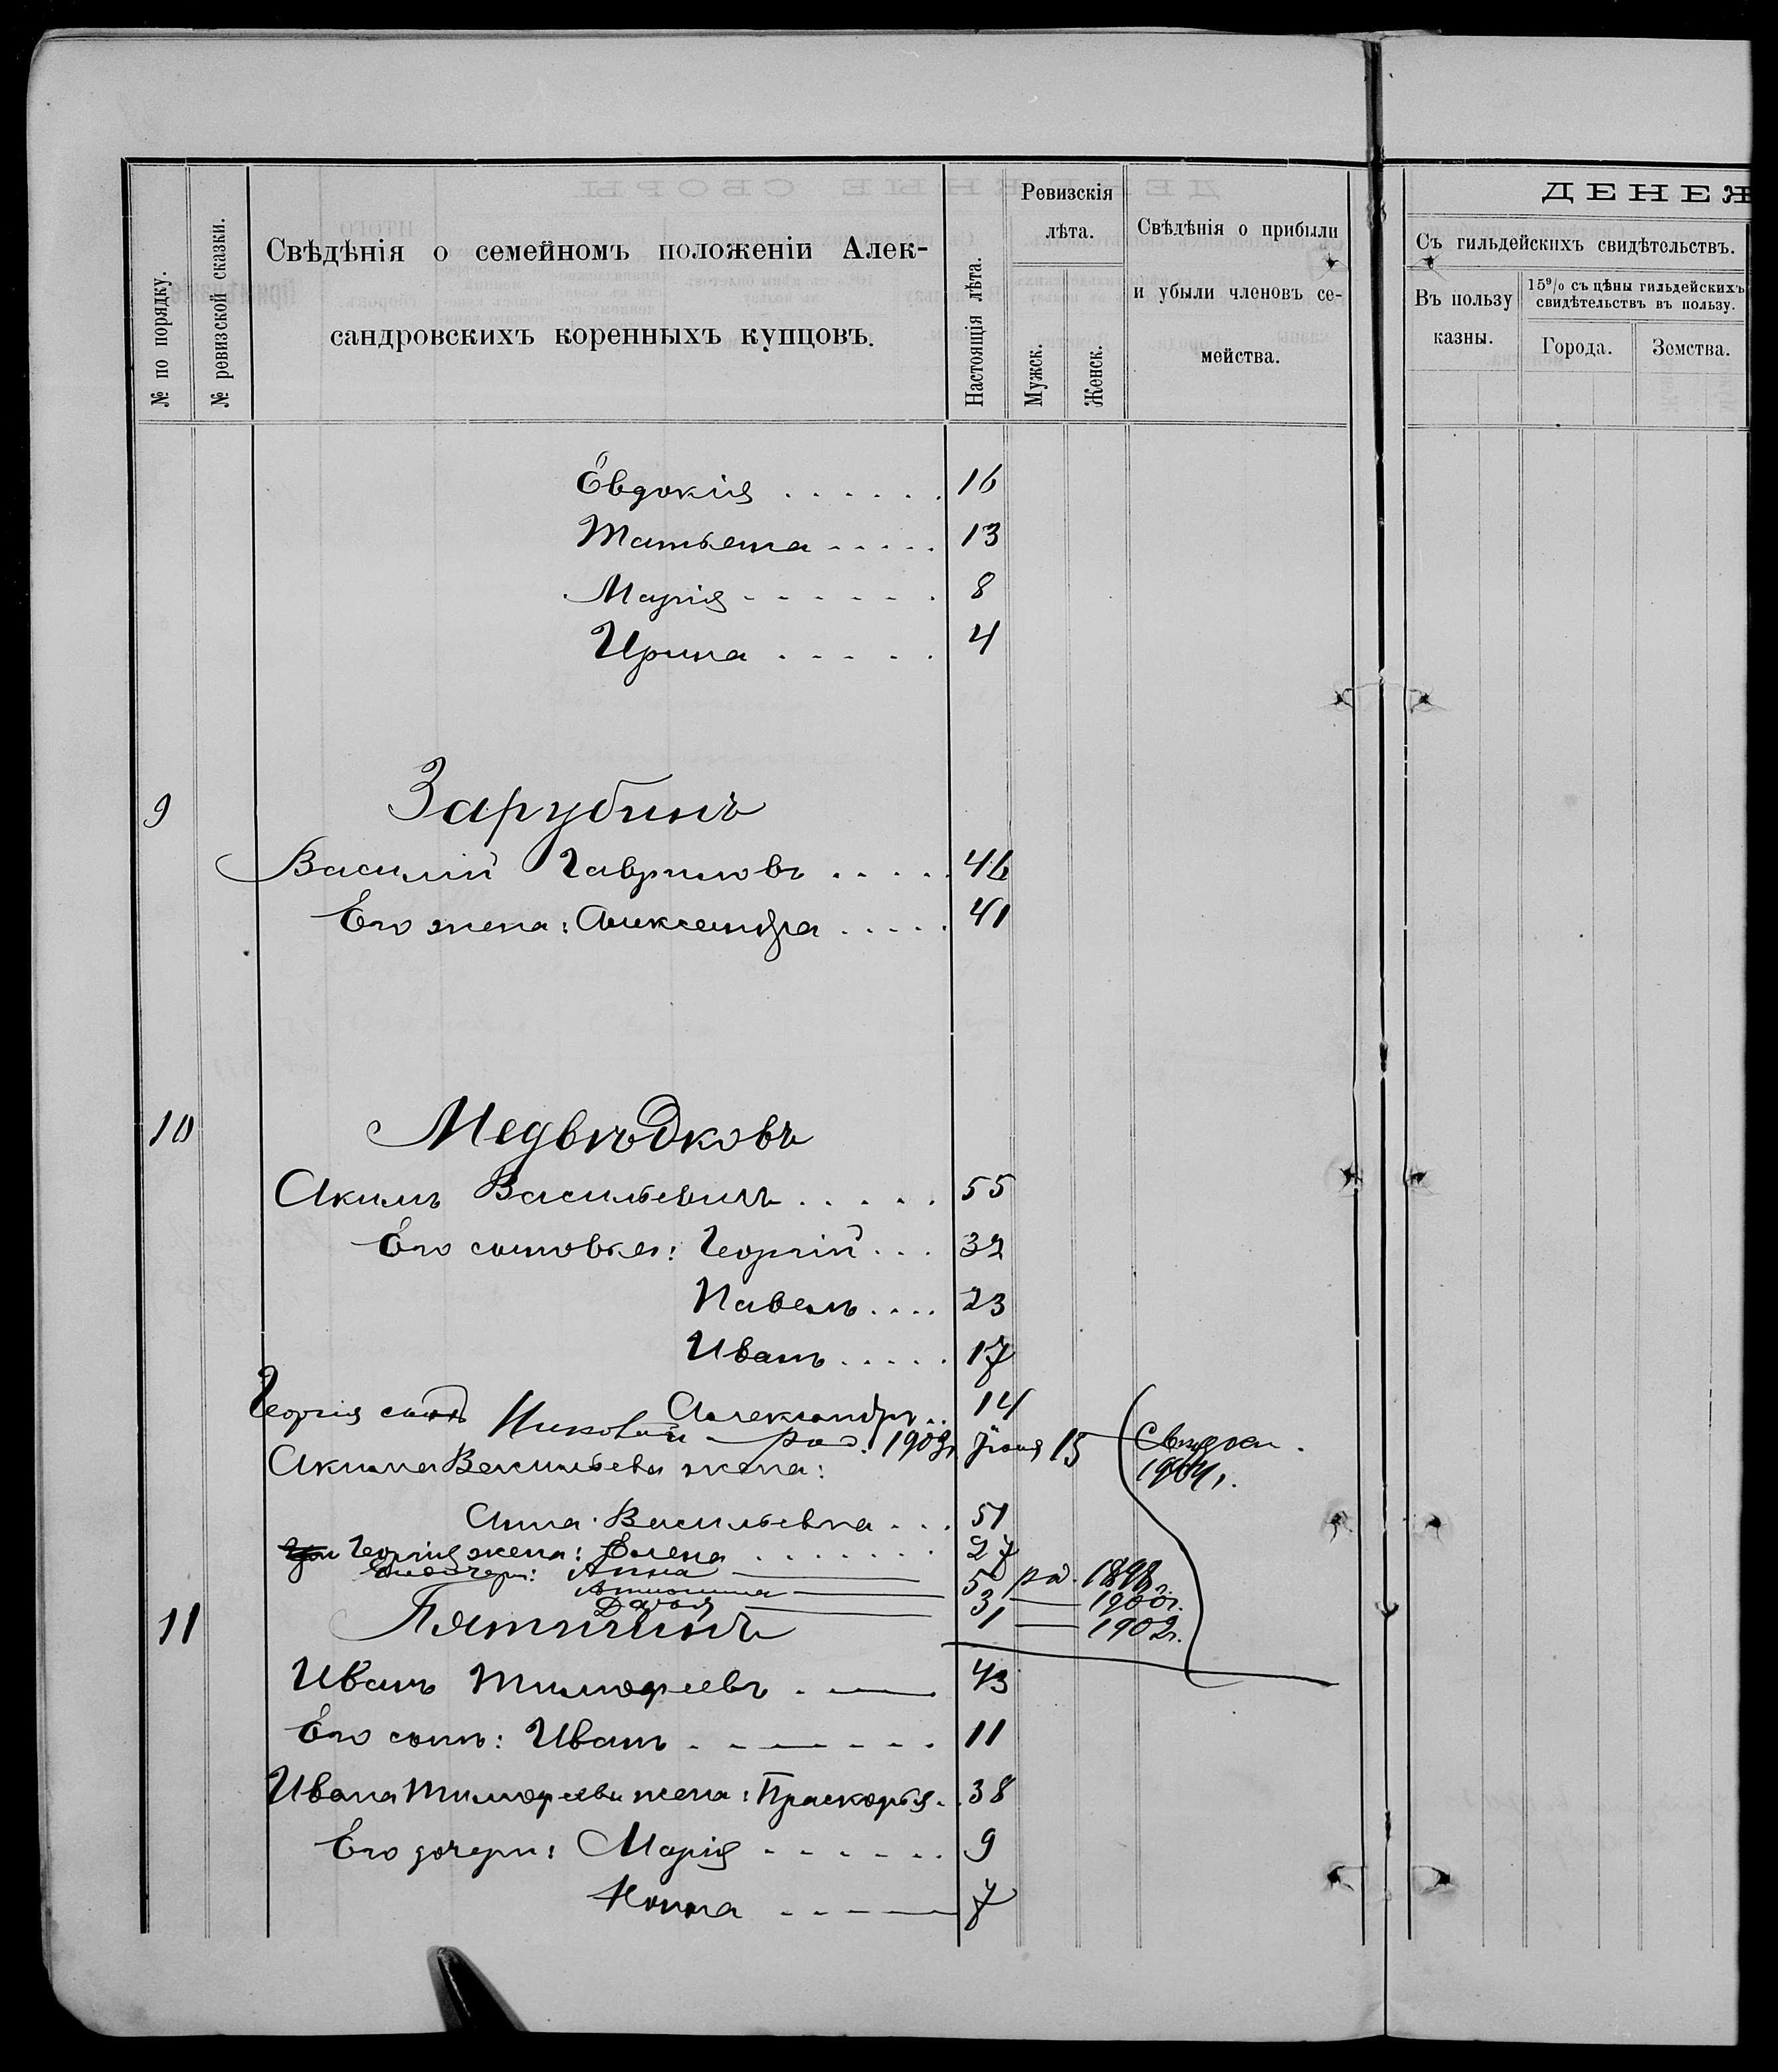 № по порядку.
№ ревизской сказки.
Свѣдѣнія о семейномъ положеніи Алек-
сандровскихъ коренныхъ купцовъ.
Настоящія лѣта.
Ревизскія
лѣта.
Мужск.
Женск.
Свѣдѣнія о прибыли
и убыли членовъ се-
мейства.
ДЕНЕЖ
Съ гильдейскихъ свидѣтельствъ.
Въ пользу
казны.
15% съ цѣны гильдейскихъ
свидѣтельствъ въ пользу.
Города.
Земства.
Евдокія . . . . . . 16
Татьяна . . . . . 13
Марія . . . . . . 8
Ирина . . . . . 4
9 Зарубинъ
Василій Гавриловъ . . . . . 46
Его жена: Александра . . . . . 41
10 Медвѣдковъ
Акимъ Васильевичъ . . . . . 55
Его сыновья: Георгій . . . 32
Павелъ . . . . 23
Иванъ . . . . . 17
Георгія сынъ Александръ . . 14
Николай род. 1903г. Іюня 15
1904г.
Акима Васильева жена:
Анна Васильевна . . . 51
Георгія жена: Елена . . . . . . . 27
дочери: Анна 5 род. 1898г.
Антонина 3 1900г.
Дарья 1 1902г.
11 Пятицинъ
Иванъ Тимофеевъ . 43
Его сынъ: Иванъ . . . . . . . 11
Ивана Тимофеева жена: Прасковья . . 38
Его дочери: Марія . . . . . . 9
Нонна . . . . 7